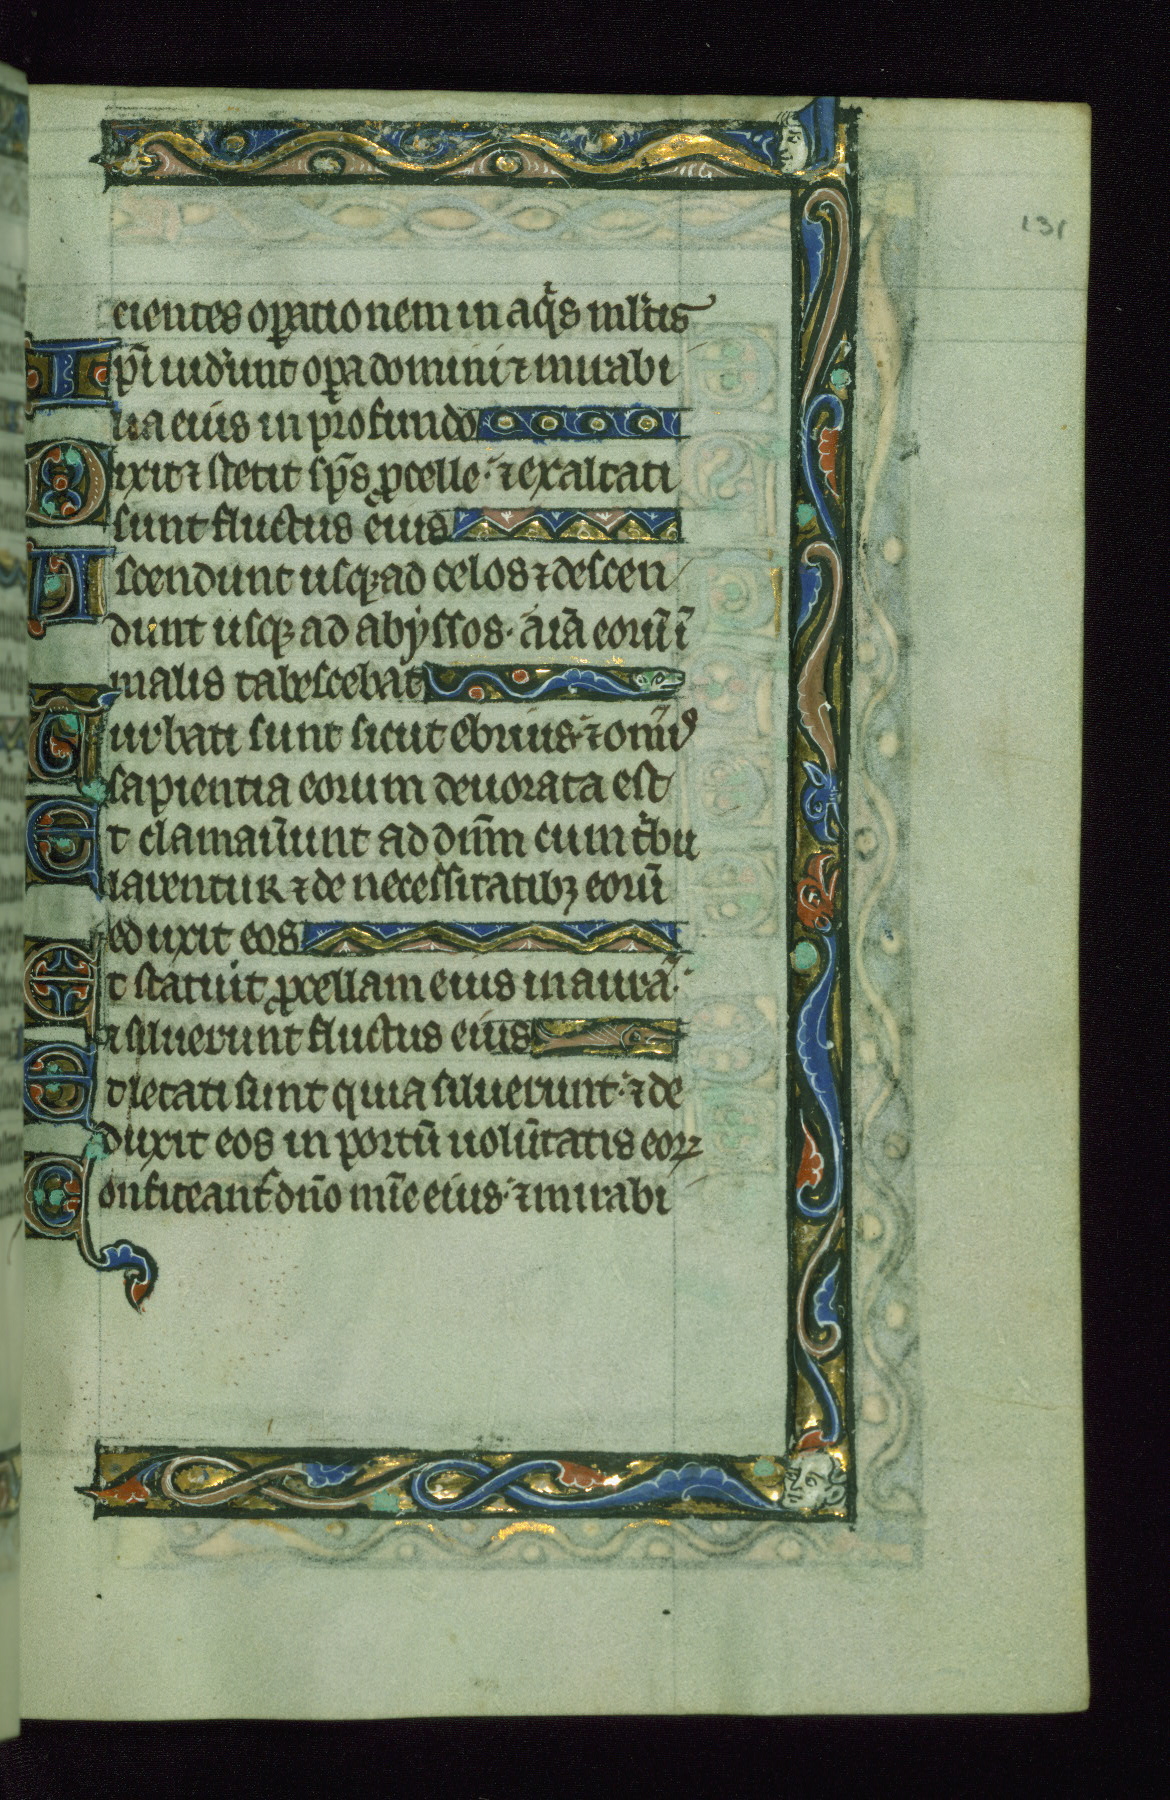 131
cientes op̲ationem in aq̾s ml̾tis
Ip̄i uid̾unt op̲a domini ⁊ mirabi
lia eius in profundo
Dixit ⁊ stetit sp̄s p̲celle· ⁊ exaltati
sunt fluctus eius
Ascendunt usq; ad celos ⁊ descen
dunt usq; ad abyssos· āīa eorū ī
malis tabescebat
Turbati sunt sicut ebrius· ⁊ om̄is
sapientia eorum deuorata est
Et clamau̾unt ad dn̄m cum t̾bu
larentur ⁊ de necessitatib; eorū
eduxit eos
Et statuit p̲cellam eius in aurā·
⁊ siluerunt fluctus eius
Et letati sunt quia siluerunt· ⁊ de
duxit eos in portū uolūtatis eoꝝ
Confiteant̾ dn̄o mīe eius· ⁊ mirabi